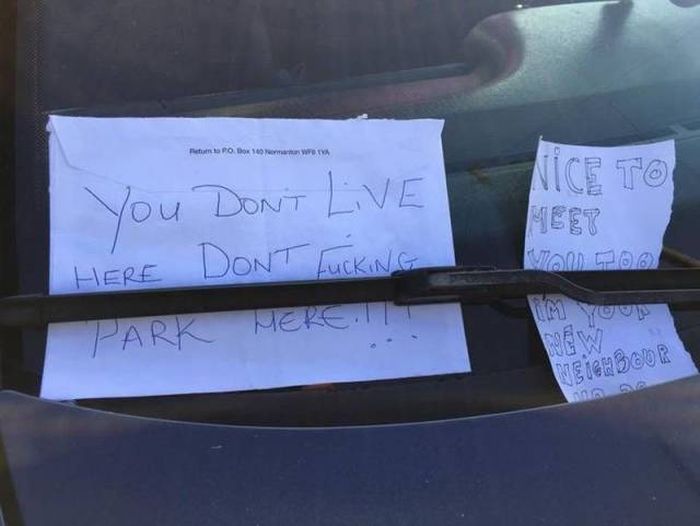 Return to P.O. Box 140 Normanton WF6 1YA
YOU DONT LIVE
HERE DONT FUCKING
PARK HERE.!!!
NICE TO
MEET
YOU TOO
IM YOUR
NEW
NEIGHBOUR